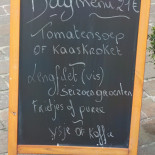 Dagmenu 21€
Tomatensoep
of kaaskroket
Lengfilet (vis)
seizoensgroenten
Frietjes of puree
Ijsje of koffie